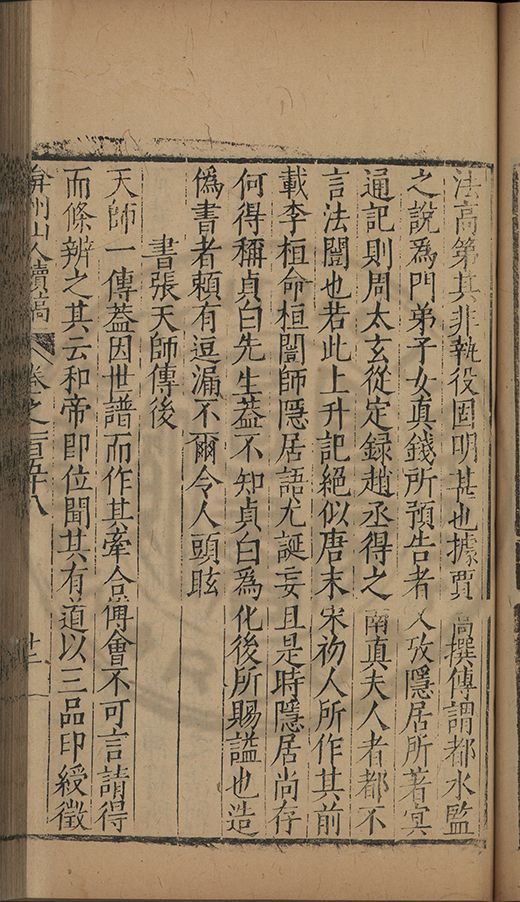 法高第其非執役固明甚也據賈嵩撰傳謂都水監
之說為門弟子女真錢所預告者又攷隱居所著冥
通記則周太玄從定録趙丞得之南真夫人者都不
言法闓也若此上升記絕似唐末宋初人所作其前
載李桓命桓闓師隱居語尤誕妄且是時隱居尚存
何得稱貞白先生葢不知貞白為化後所賜謚也造
偽書者頼有逗漏不爾令人頭眩
書張天師傳後
天師一傳葢因世譜而作其牽合傅會不可言請得
而條辨之其云和帝即位聞其有道以三品印綬徵
弇州山人續稿 卷之一百五十八 廿二